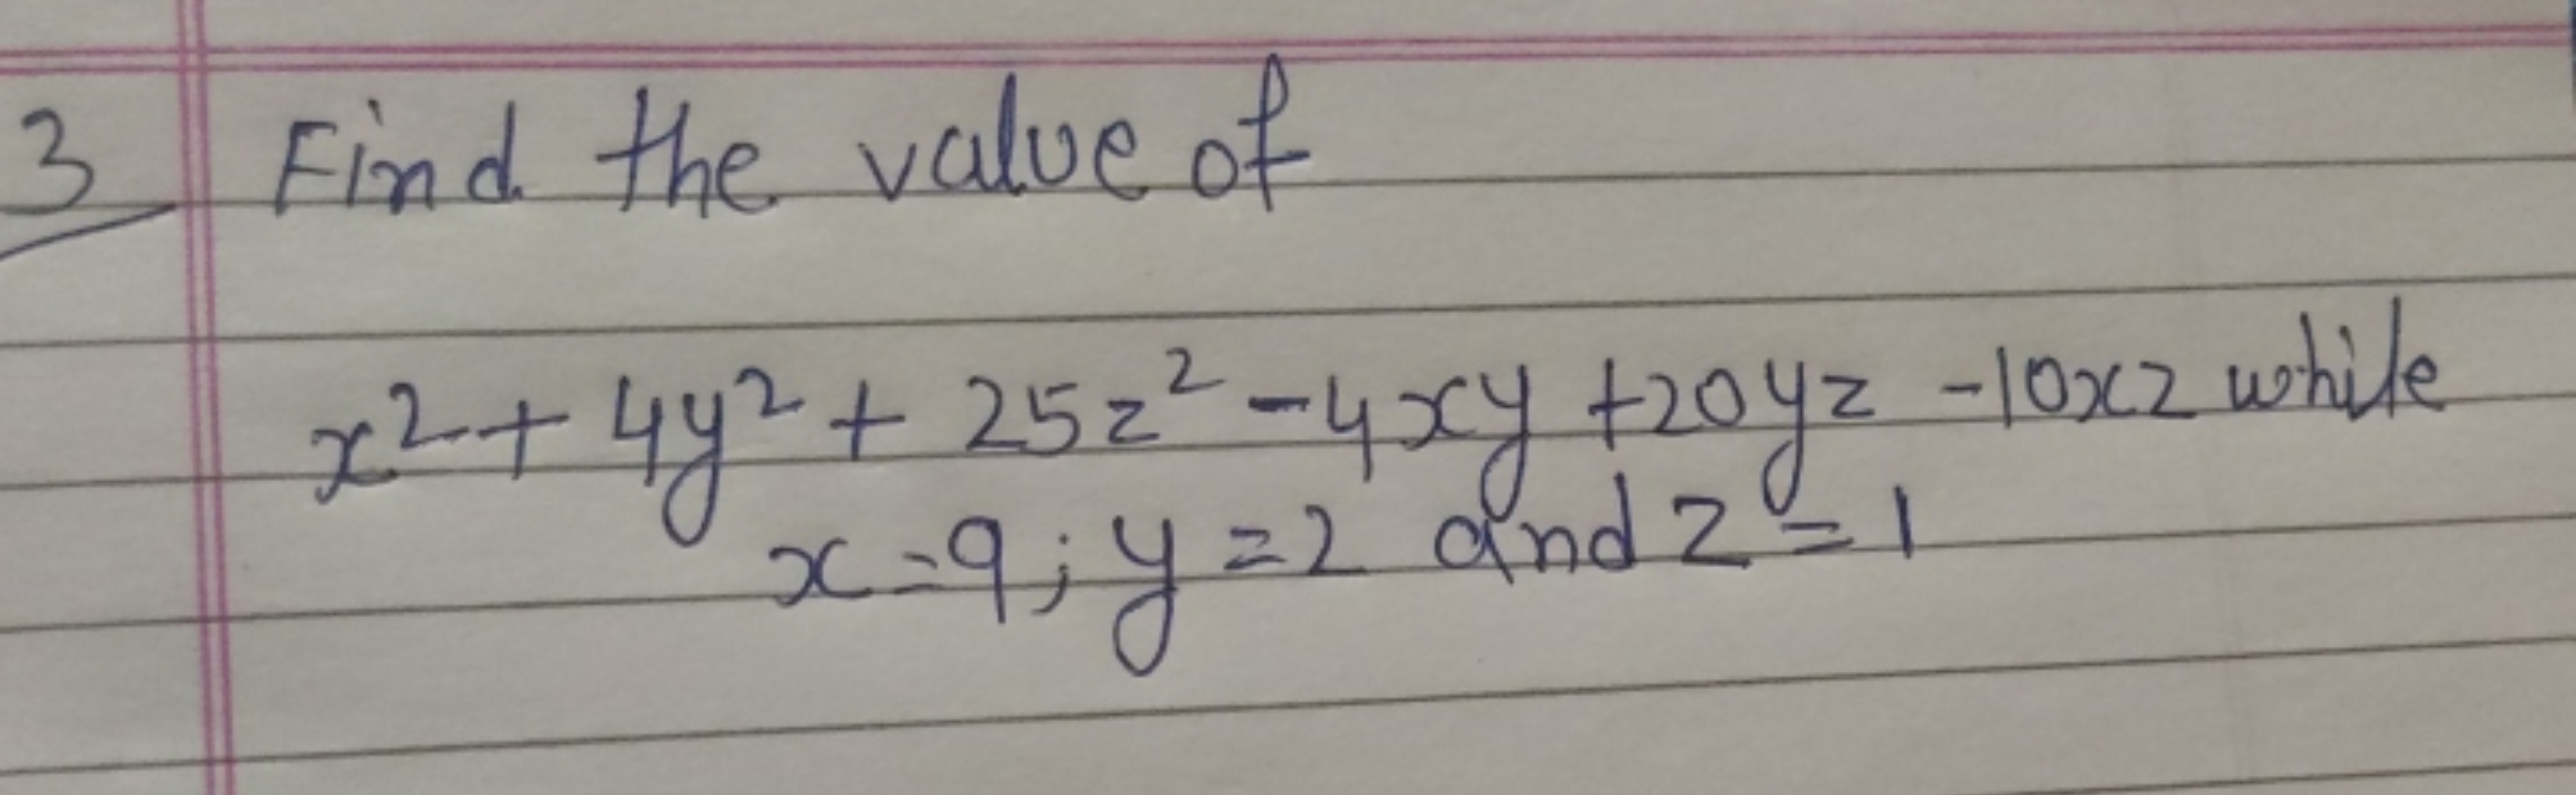 3 Find the value of
x² + 4y² + 25z² - 4xy + 20yz - 10xz while
x = 9 ; y = 2 and z = 1